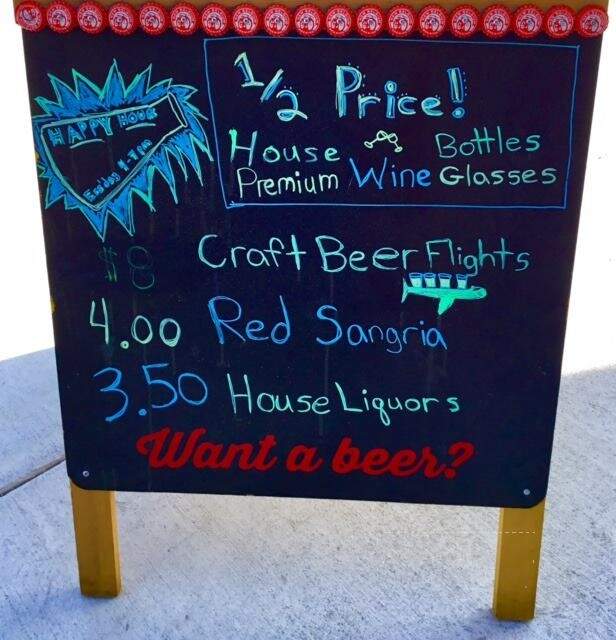 HAPPY HOUR
1/2 Price!
House Bottles
Premium Wine Glasses
$8 Craft Beer Flights
4.00 Red Sangria
3.50 House Liquors
Want a beer?